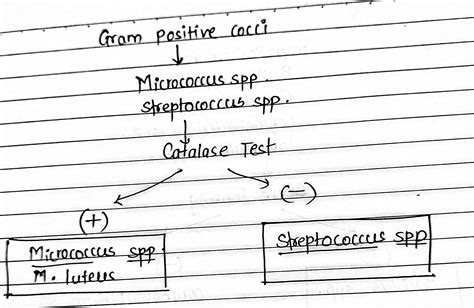 Gram positive cocci
Micrococcus spp.
Streptococcus spp.
Catalase Test
(+)
(-)
Micrococcus spp
M. luteus
Streptococcus spp